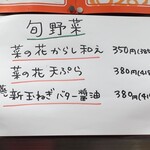 旬野菜
菜の花 からし和え 350円
菜の花 天ぷら 380円
新玉ねぎバター醤油 380円